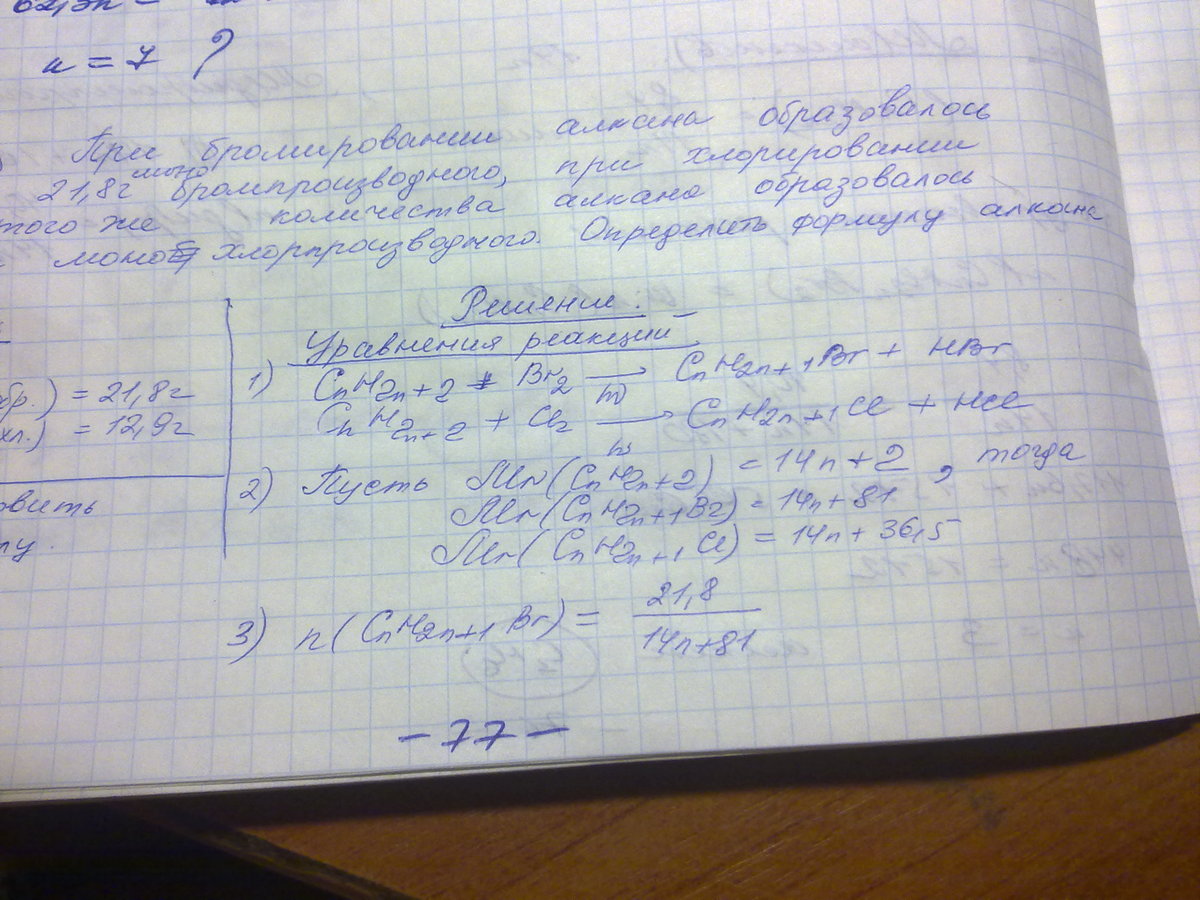 n = 7 ?
При бромировании алкана образовалось
21,8г моно бромпроизводного, при хлорировании
того же количества алкана образовалось
моно хлорпроизводного. Определить формулу алкана
Решение:
Уравнения реакции
1) CnH2n+2 + Br2 → CnH2n+1Br + HBr
CnH2n+2 + Cl2 → CnH2n+1Cl + HCl
бр.) = 21,8г
хл.) = 12,9г
2) Пусть Mr(CnH2n+2) = 14n+2, тогда
Mr(CnH2n+1Br) = 14n+81
Mr(CnH2n+1Cl) = 14n+36,5
3) n(CnH2n+1Br) = 21,8
14n+81
-77-